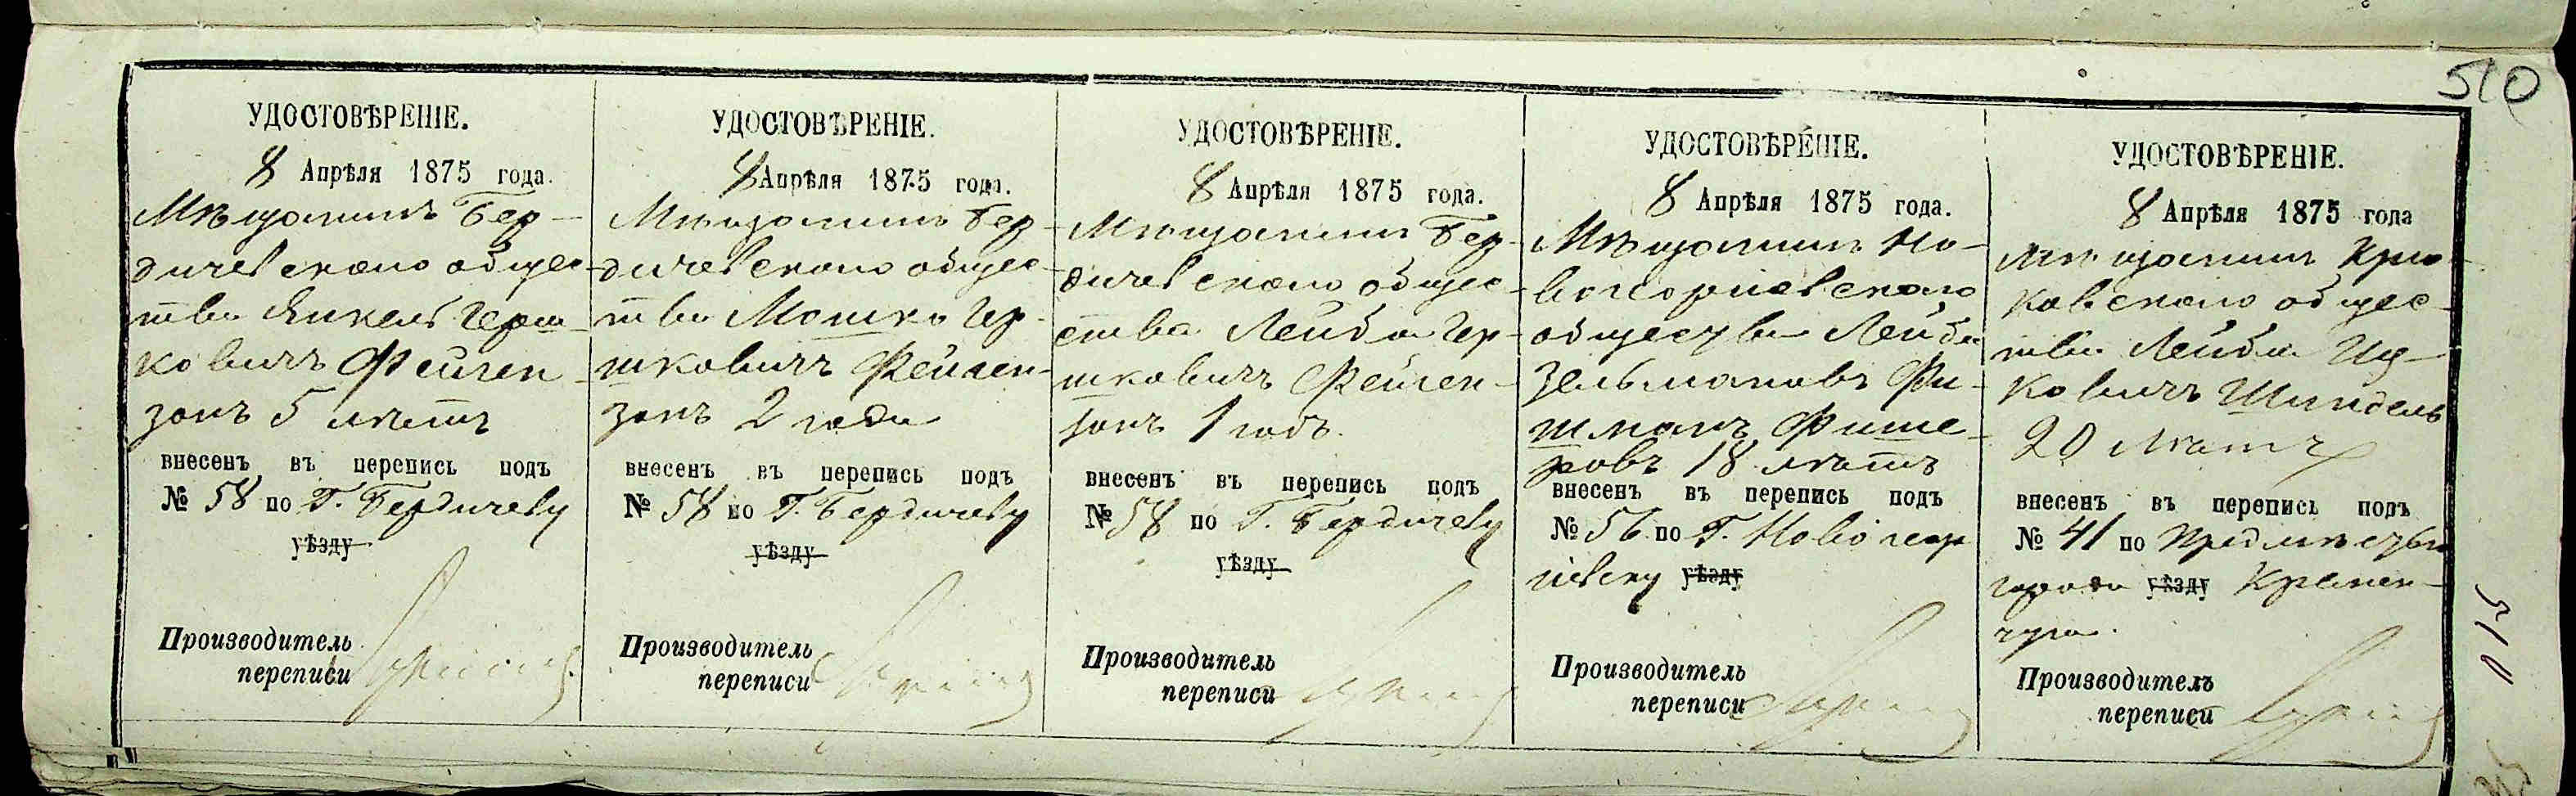 510
УДОСТОВѢРЕНІЕ.
8 Апрѣля 1875 года.
Мѣщанинъ Бер-
дичевскаго общес-
тва Янкель Герш-
ковичъ Фейген-
зонъ 5 лѣтъ
внесенъ въ перепись подъ
№ 58 по Г. Бердичеву
уѣзду
Производитель
переписи
УДОСТОВѢРЕНІЕ.
8 Апрѣля 1875 года.
Мѣщанинъ Бер-
дичевскаго общес-
тва Мошко Гер-
шковичъ Фейген-
зонъ 2 года
внесенъ въ перепись подъ
№ 58 по Г. Бердичеву
уѣзду
Производитель
переписи
УДОСТОВѢРЕНІЕ.
8 Апрѣля 1875 года.
Мѣщанинъ Бер-
дичевскаго общес-
ства Лейба Гер-
шковичъ Фейген-
зонъ 1 годъ.
внесенъ въ перепись подъ
№ 58 по Г. Бердичеву
уѣзду
Производитель
переписи
УДОСТОВѢРЕНІЕ.
8 Апрѣля 1875 года.
Мѣщанинъ Но-
вогеоргіевскаго
общества Лейба
Зельмановъ Фи-
шманъ Фише-
ровъ 18 лѣтъ
внесенъ въ перепись подъ
№ 56 по Г. Новогеор
гіевску уѣзду
Производитель
переписи
УДОСТОВѢРЕНІЕ.
8 Апрѣля 1875 года
Мѣщанинъ Крю-
ковскаго общес-
тва Лейба Иц-
ковичъ Шиндель
20 лѣтъ
внесенъ въ перепись подъ
№ 41 по Предмѣстью
города уѣзду Кремен-
чуга.
Производитель
переписи
510